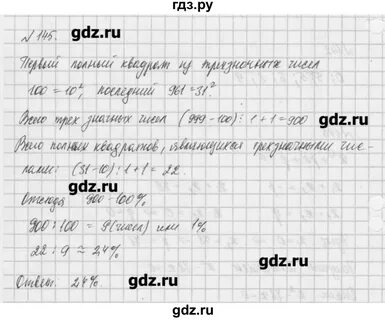 гдз.ру
№ 145.
гдз.ру
Первый полный квадрат из трехзначных чисел
100 = 10², последний 961 = 31².
гдз.ру
Всего трех значных чисел (999 - 100) : 1 + 1 = 900
гдз.ру
Всего полных квадратов, являющихся трехзначными чис-
лами: (31 - 10) : 1 + 1 = 22.
гдз.ру
Отсюда 900 - 100%
гдз.ру
900 : 100 = 9 (чисел) или 1%
гдз.ру
22 : 9 ≈ 2,4%
гдз.ру
Ответ: 2,4%
гдз.ру